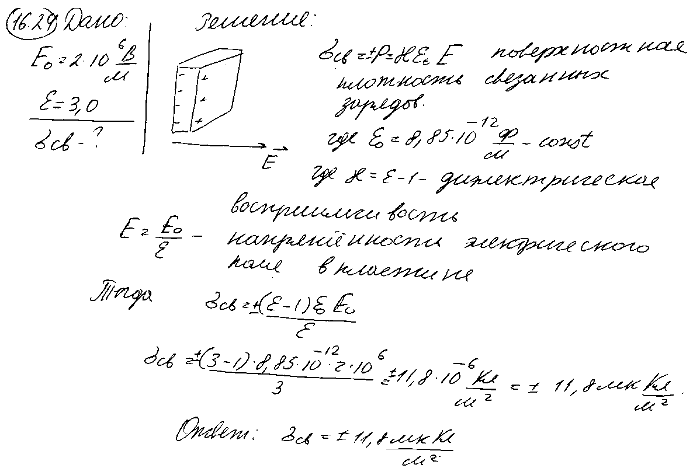 16.29 Дано: Решение:
E₀ = 2·10⁶ В/м
ε = 3,0
σсв - ?
- + - + - + - +
E⃗
σсв = ±P = ϰε₀E поверхностная
плотность связанных
зарядов.
где ε₀ = 8,85·10⁻¹² Ф/м - const
где ϰ = ε-1 - диэлектрическая
восприимчивость
E = E₀/ε - напряжённости электрического
поле в пластине
Тогда σсв = ±(ε-1)ε₀E₀/ε
σсв = ±(3-1)·8,85·10⁻¹²·2·10⁶/3 = ±11,8·10⁻⁶ Кл/м² = ± 11,8 мк Кл/м².
Ответ: σсв = ±11,8 мкКл/м²